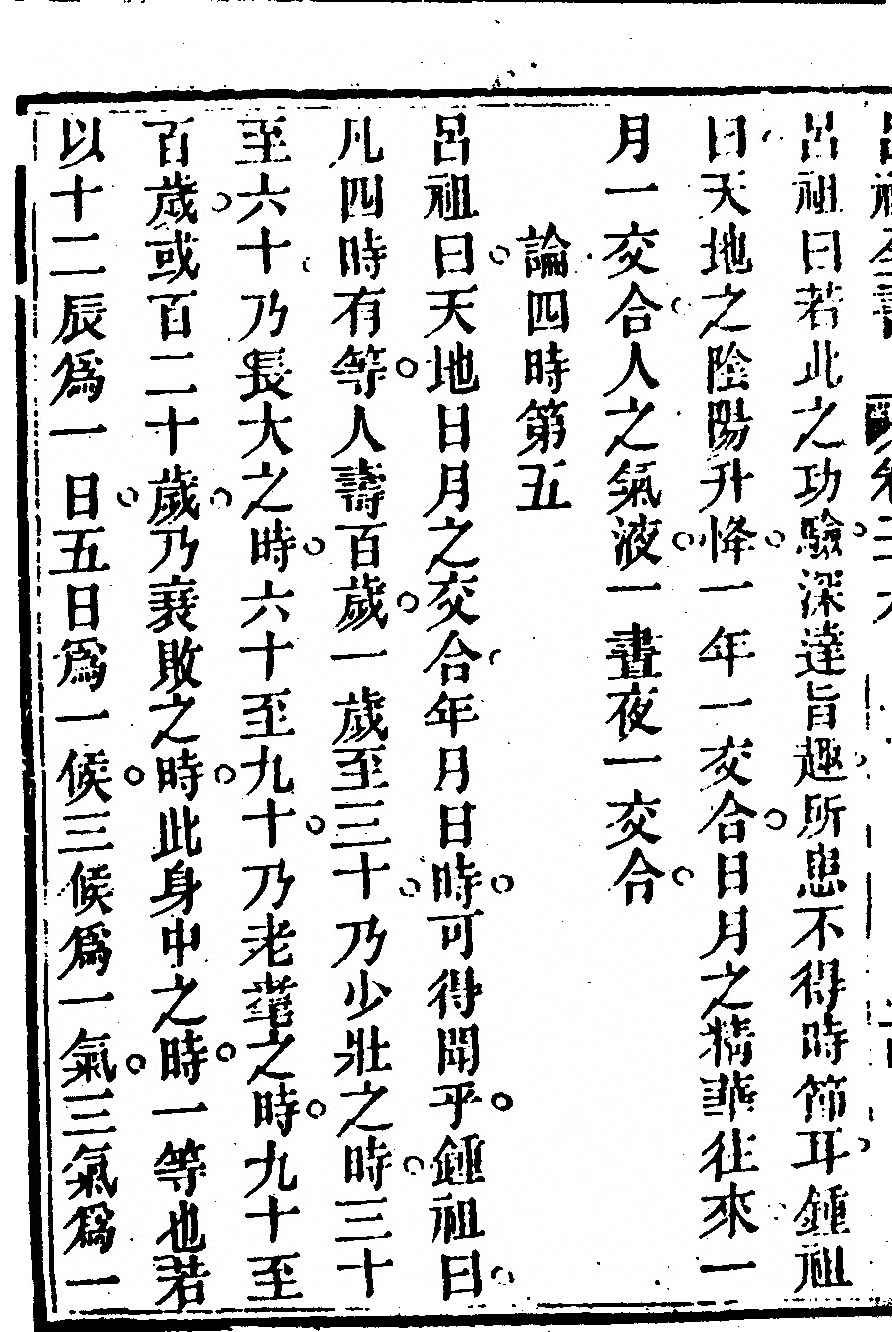 呂祖曰若此之功驗深達旨趣所患不得時節耳鍾祖
曰天地之陰陽升降一年一交合日月之精華往來一
月一交合人之氣液一晝夜一交合
論四時第五
呂祖曰天地日月之交合年月日時可得聞乎鍾祖曰
凡四時有等人壽百歲一歲至三十乃少壯之時三十
至六十乃長大之時六十至九十乃老耄之時九十至
百歲或百二十歲乃衰敗之時此身中之時一等也若
以十二辰爲一日五日爲一候三候爲一氣三氣爲一